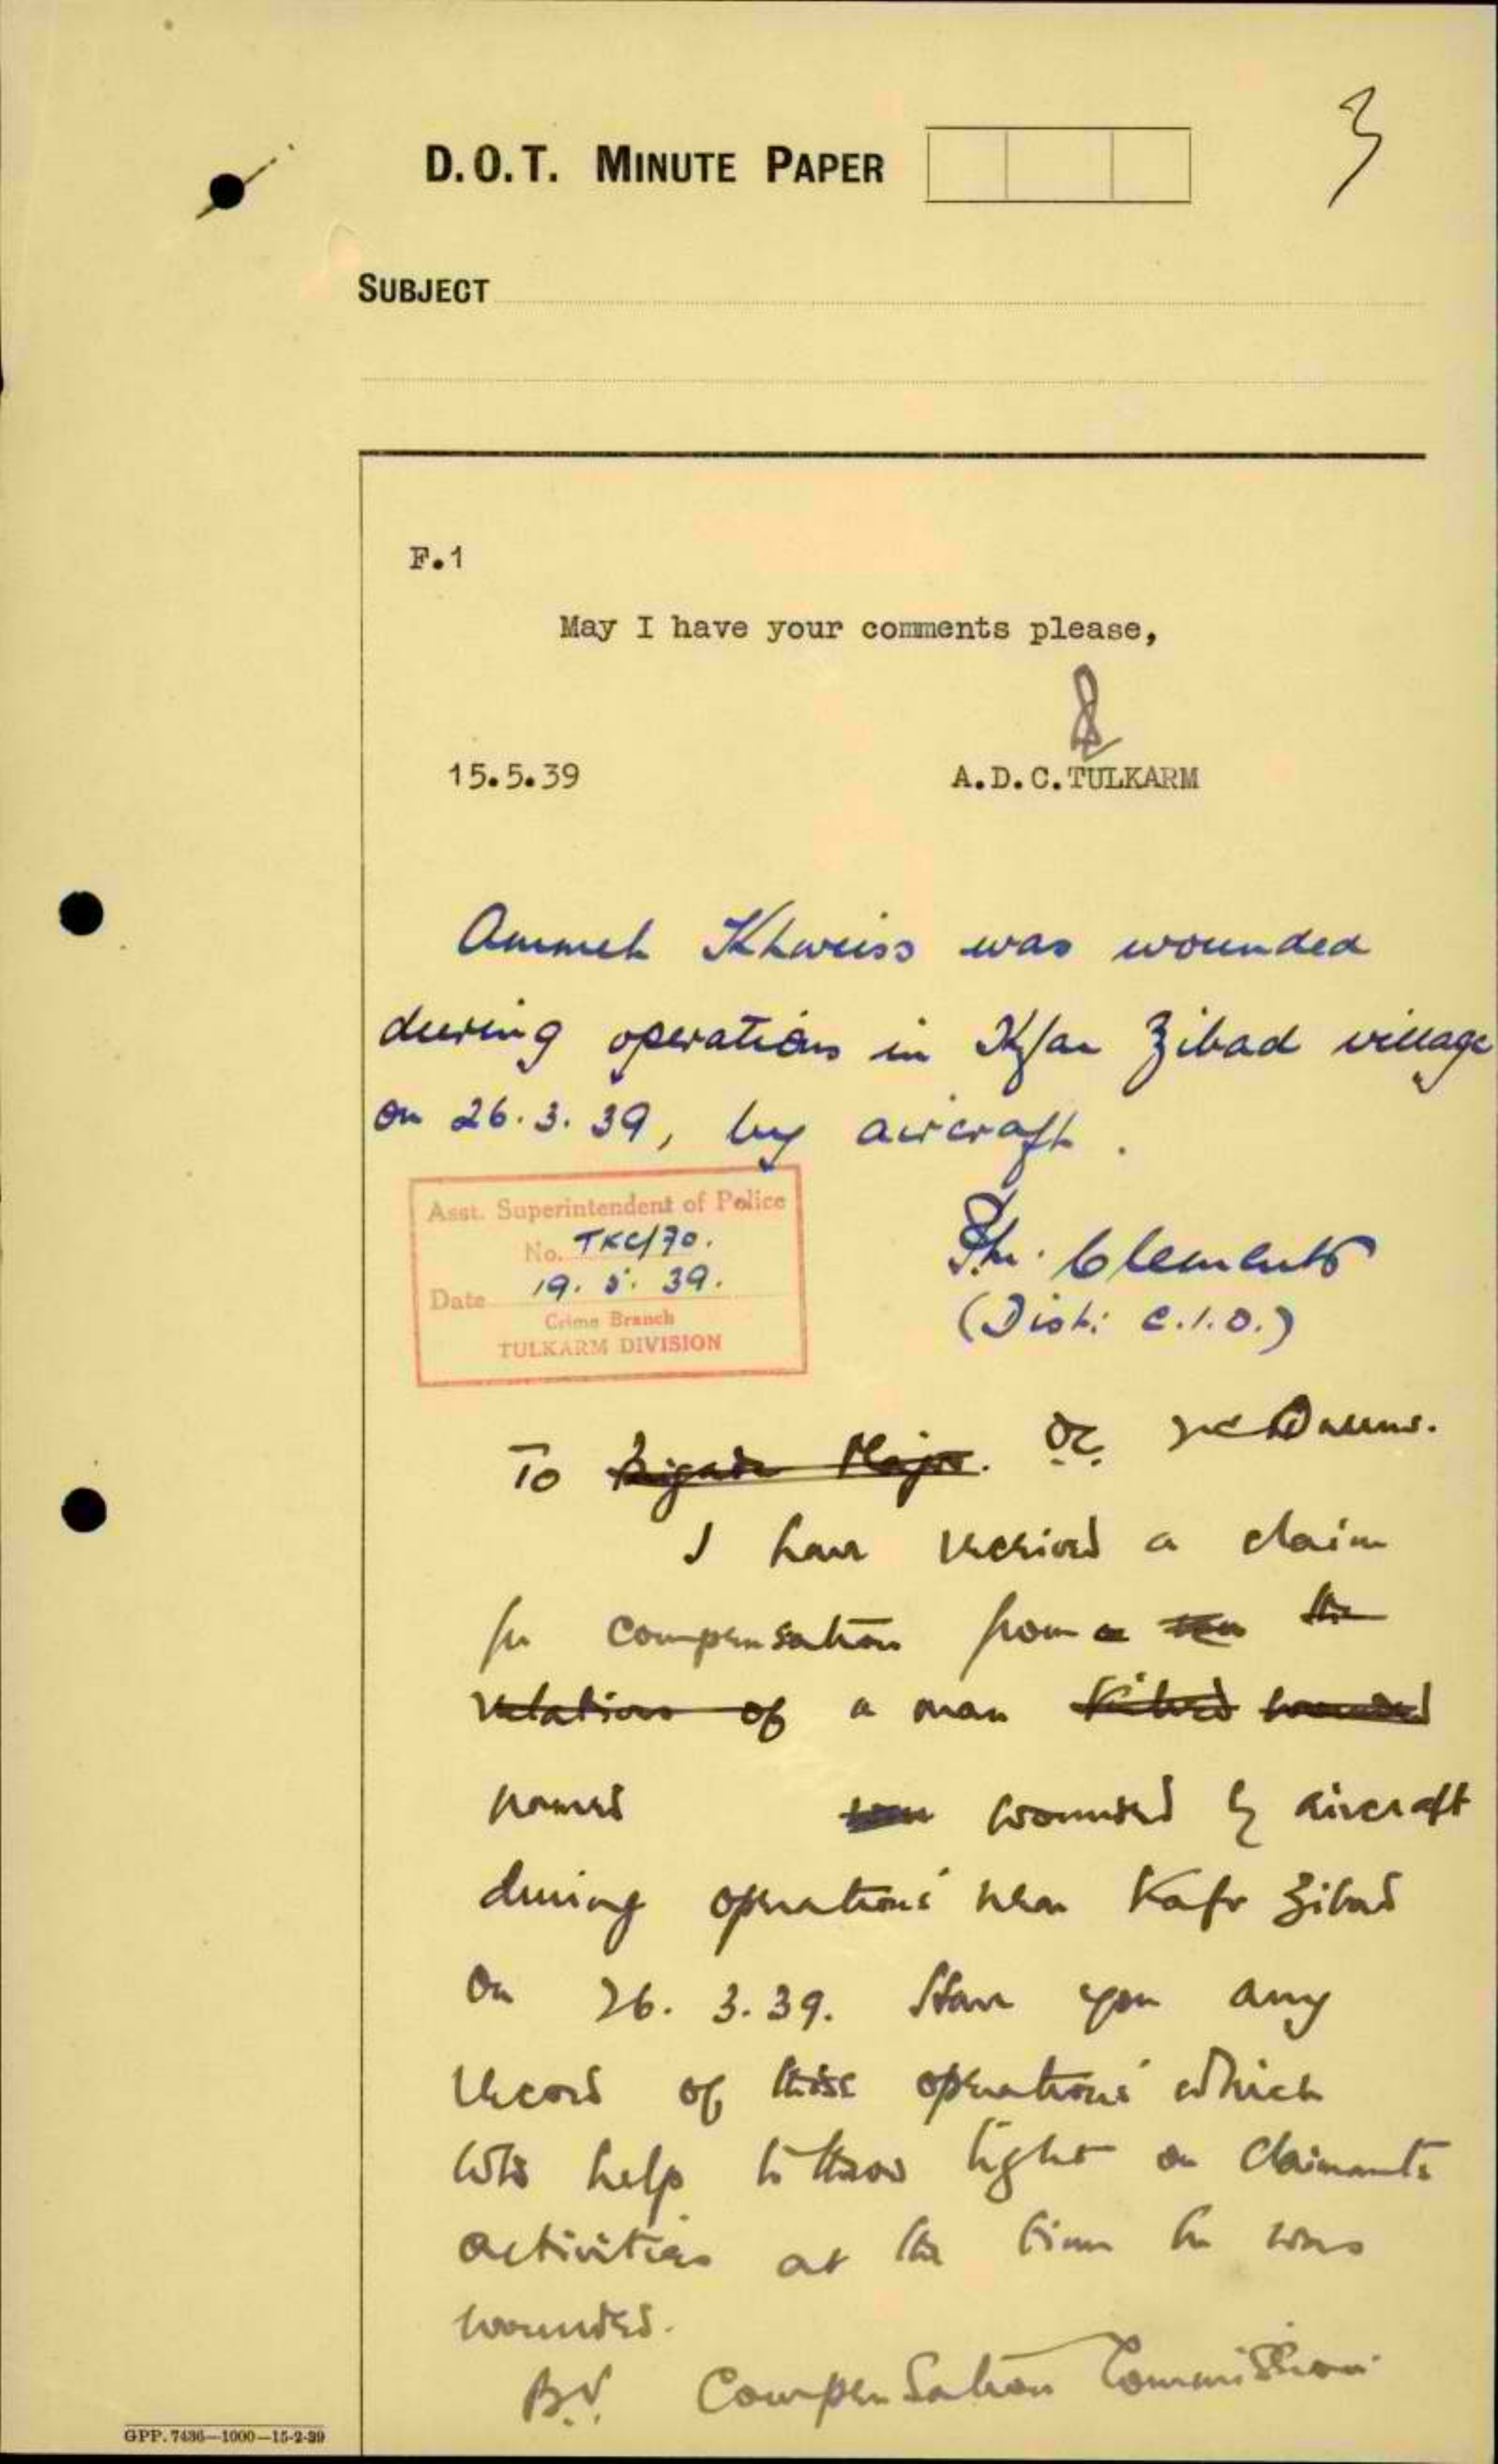 3
D.O.T. MINUTE PAPER
SUBJECT
F.1
May I have your comments please,
15.5.39
A.D.C.TULKARM
Ammeh Khweiss was wounded
during operations in Kfar Zibad village
on 26.3.39, by aircraft.
Asst. Superintendent of Police
No. TKC/70.
Date 19.5.39.
Crime Branch
TULKARM DIVISION
Clements
(Dist: C.I.O.)
To Brigade Major. OC
I have received a claim
for compensation from a the
relations of a man killed wounded
named was wounded by aircraft
during operations near Kafr Zibad
on 26.3.39. Have you any
record of these operations which
wld help to throw light on claimants
activities at the time he was
wounded.
B.V. Compensation Commission
GPP. 7436—1000—15-2-39